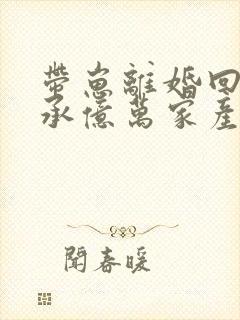 帶崽離婚回
承億萬家產
閒春暖